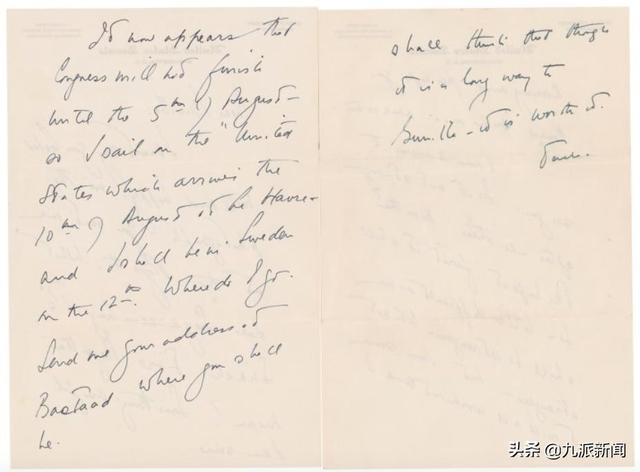 It now appears that
Congress will not finish
until the 5th of August –
so I sail on the "United
States which arrives the
10th of August at Le Havre –
and I shall be in Sweden
on the 12th. Where do I go.
Send me your address at
Bastaad where you shall
be.
shall think that though
it is a long way to
Gunilla – it is worth it.
Jack.
头条 @九派新闻